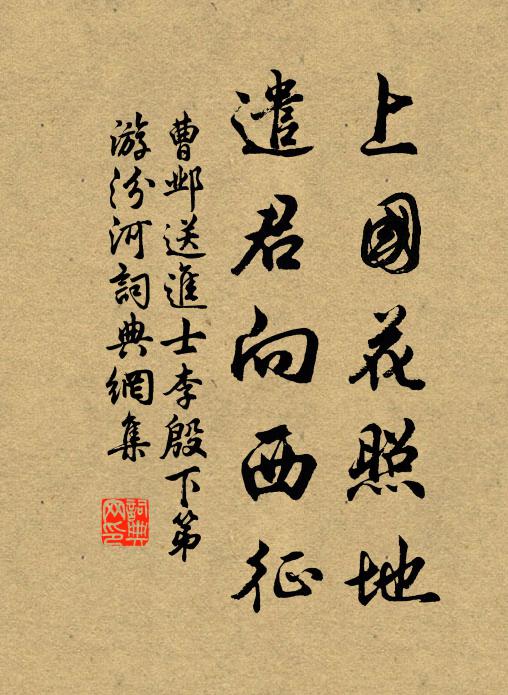 上國花照地
遣君向西征
曹邺送進士李殷下第
游汾河詞典網集
詞典
网印